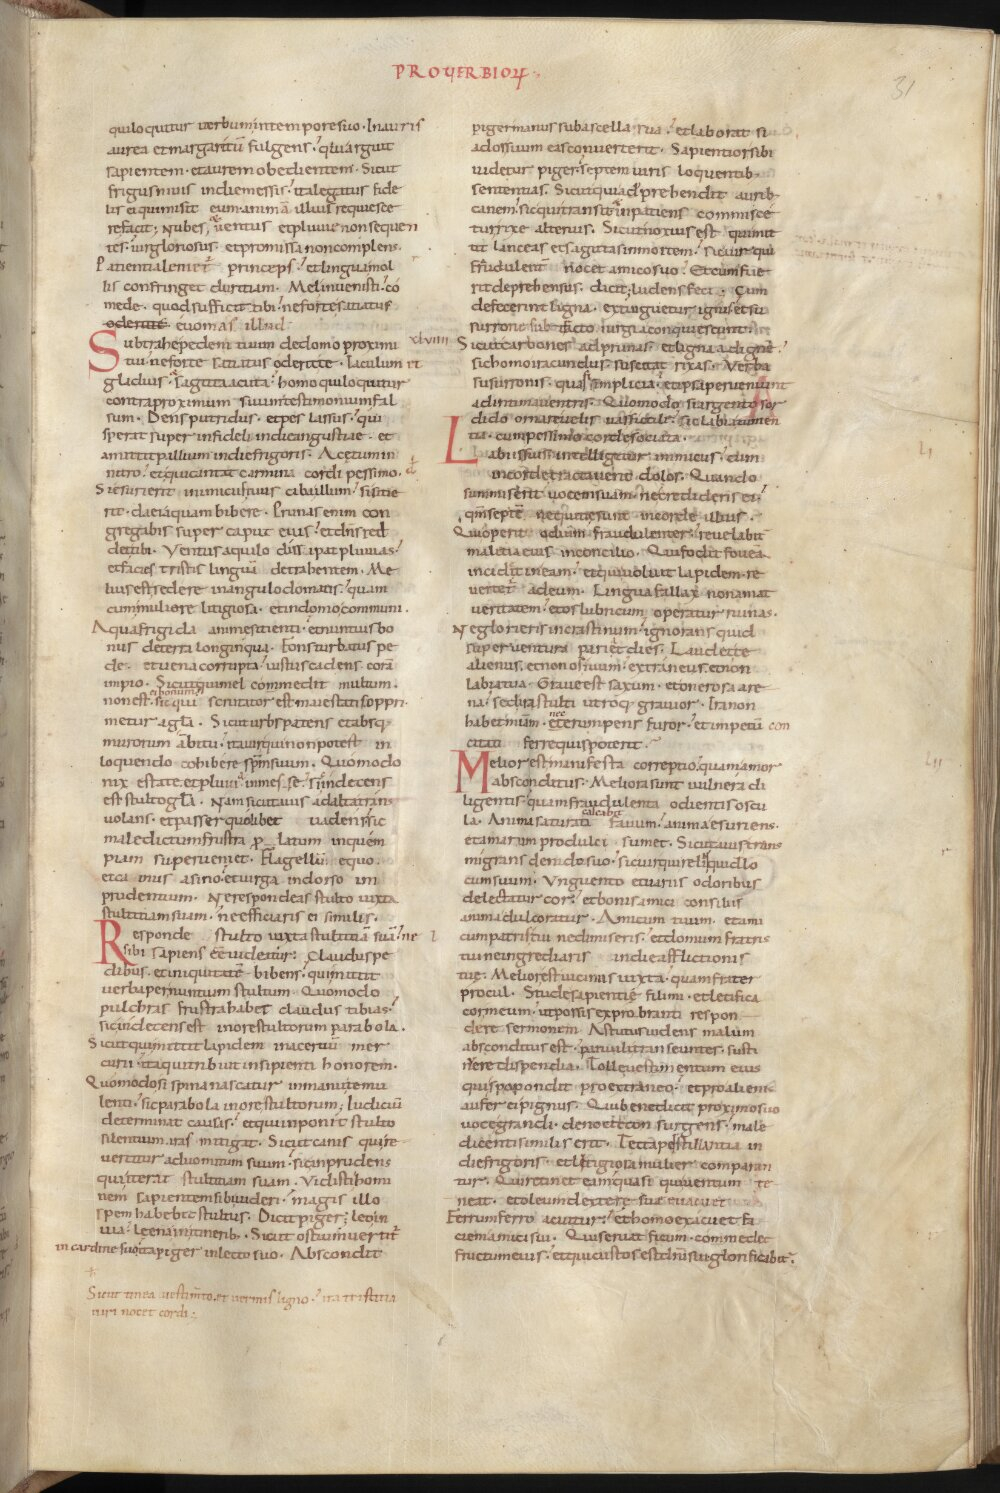 PROVERBIOꝜ
31
qui loquitur verbum in tempore suo. Inauris
aurea et margaritū fulgens. qui arguit
sapientem. et aurem obedientem. Sicut
frigus nivis in die messis. ita legatus fide
lis ei qui misit eum. animā illius requiesce
re facit; Nubes, & ventus et pluuie non sequen
tes. uir gloriosus. et promissa non complens.
Patientia lenietᷣ princeps. et lingua mol
lis confringet duritiam. Mel inuenisti. co
mede. quod sufficit tibi. ne forte satiatus
oderit te. euomas illud
Subtrahe pedem tuum de domo proximi
tui. ne forte satiatus oderit te. Iaculum et
gladius. & sagitta acuta. homo qui loquitur
contra proximum suum testimonium fal
sum. Dens putridus. et pes lassus. qui
sperat super infideli in die angustiae. et
amittit pallium in die frigoris. Acetum in
nitro. et qui cantat carmina cordi pessimo.
Si esurierit inimicus tuus ciba illum. si sitie
rit. da ei aquam bibere. Prunas enim con
gregabis super caput eius. et dn̄s red
det tibi. Ventus aquilo dissipat pluuias.
et facies tristis linguā detrahentem. Me
lius est sedere in angulo domatis. quam
cum muliere litigiosa. et in domo communi.
Aqua frigida anime sitienti. et nuntius bo
nus de terra longinqua. Fons turbatus pe
de. et uena corrupta. iustus cadens corā
impio. Sicut qui mel commedit multum.
non est ei bonum. sic qui scrutator est maiestatis oppri
metur a gl̄a. Sicut urbs patens et absq;
murorum ambitu. ita uir qui non potest in
loquendo cohibere sp̄m suum. Quomodo
nix estate. et pluuia in messe. sic indecens
est stulto gl̄a. Nam sicut auis ad alta tran
uolans. et passer quolibet uadens. sic
maledictum frustra prolatum in quem
piam superueniet. Flagellū equo.
et camus asino. et uirga in dorso im
prudentium. Ne respondeas stulto iuxta
stultitiam suam. ne efficiaris ei similis.
Responde stulto iuxta stultitiā suā. ne
sibi sapiens ēē uideatur. Claudus pe
dibus. et iniquitatē bibens. qui mittit
uerba per nuntium stultum. Quomodo
pulchras frustra habet claudus tibias.
sic indecens est in ore stultorum parabola.
Sicut qui mittit lapidem in aceruū mer
curii. ita qui tribuit insipienti honorem.
Quomodo si spina nascatur in manu temu
lenti. sic parabola in ore stultorum; Iudiciū
determinat causas. et qui inponit stulto
silentium. iras mitigat. Sicut canis qui re
uertitur ad uomitum suum. sic inprudens
qui iterat stultitiam suam. Vidisti homi
nem sapientem sibi uideri. magis illo
spem habebit stultus. Dicit piger; leo in
uia. leena in itinerib. Sicut ostium uertitᷣ
in cardine suo. ita piger in lecto suo. Abscondit
Sicut tinea uestimto. et uermis ligno. ita tristitia
uiri nocet cordi;
piger manus sub ascella sua. et laborat si
ad os suum eas conuerterit. Sapientior sibi
uidetur piger. septem uiris loquentib.
sententias. Sicut qui adprehendit aurib.
canem. sic qui transit & inpatiens commisce
tur rixe alterius. Sicut noxius est qui mit
tit lanceas et sagittas in mortem. sic uir qui
fraudulenter nocet amico suo. Et cum fue
rit deprehensus. dicit; ludens feci. Cum
defecerint ligna. extinguetur ignis. et su
surrone subtracto iurgia conquiescunt.
xlviiii
Sicut carbones ad prunas. et ligna ad ignē.
sic homo iracundus. suscitat rixas. Verba
susurronis. quasi simplicia. et ipsa perueniunt
ad intima uentris. Quomodo si argento sor
dido ornare uelis uas fictile. sic labia tumen
tia. cum pessimo corde sociata.
Labiis suis intelligetur inimicus. cum
in corde tractauerit dolos. Quando
summiserit uocem suam. ne credideris ei.
qm̄ septē nequitie sunt in corde illius.
Qui operit odium fraudulenter. reuelabitᷣ
malitia eius in concilio. Qui fodit foueā
incidit in eam. et qui uoluit lapidem. re
uertetᷣ ad eum. Lingua fallax non amat
ueritatem. et os lubricum operatur ruinas.
Ne glorieris in crastinum. ignorans quid
superuentura pariet dies. Laudet te
alienus. et non os tuum. extraneus. et non
labia tua. Graue est saxum. et onerosa are
na. sed ira stulti utroq; grauior. Ira non
habet miām. nec erumpens furor. et impetū con
citati ferre quis poterit.
Melior est manifesta correptio. quam amor
absconditus. Meliora sunt uulnera di
ligentis. quam fraudulenta odientis oscu
la. Anima saturata calcabit fauum. anima esuriens.
et amarum pro dulci sumet. Sicut auis trans
migrans de nido suo. sic uir qui relinquid lo
cum suum. Vnguento et uariis odoribus
delectatur cor. et bonis amici consiliis
anima dulcoratur. Amicum tuum. et ami
cum patris tui ne dimiseris. et domum fratris
tui ne ingrediaris in die afflictionis
tue. Melior est uicinus iuxta. quam frater
procul. Stude sapientię fili mi. et letifica
cor meum. ut possis exprobranti respon
dere sermonem. Astutus uidens malum
absconditus est. paruuli transeuntes. susti
nuere dispendia. Tolle uestimentum eius
qui spopondit pro extraneo. et pro alienis
aufer ei pignus. Qui benedicit proximo suo
uoce grandi. de nocte consurgens. male
dicenti similis erit. Tecta perstillantia in
die frigoris. et litigiosa mulier comparan
tur. Qui retinet eam quasi qui uentum te
neat. et oleum dextere sue euacuet
Ferrum ferro acuitur. et homo exacuet fa
ciem amici sui. Qui seruat ficum. commedet
fructum eius. et qui custos est dn̄i sui. glorificabitᷣ.